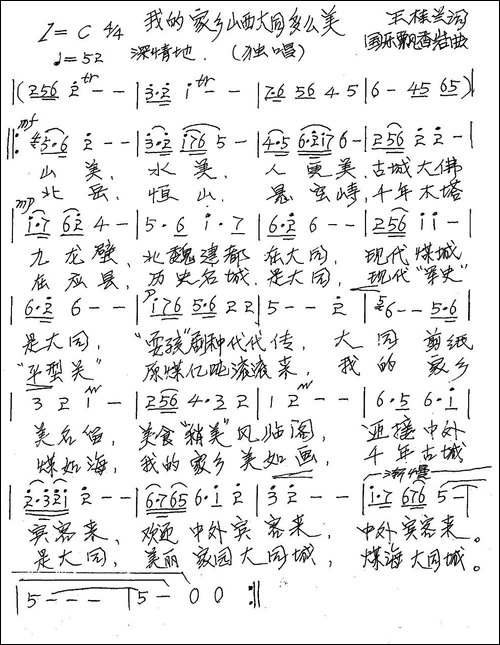 1 = C 4/4 我的家乡山西大同多么美 王桂兰词
♩=52 深情地. (独唱) 国乐飘香结曲
|(256 2 tr - - |3·2 i tr - - |7·6 56 4 5 |6 - 45 65)|
mf
||: 5·6 2 - - |3·2 176 5 - |4·5 6·217 6 - |256 2 2 - |
山 美, 水 美, 人 更美, 古城大佛
北 岳, 恒 山, 悬 空峙, 千年木塔
mp
|i·7 62 4 - |5·6 i·7 |6·2 6 - - |256 i i - |
九龙壁, 北魏建都 在大同, 现代煤城
在应县, 历史名城 是大同, 现代"军史"
|6·2 6 - - |i76 5·6 2 2 |5 - - 2 |6 - - 5·6 |
是大同, "耍孩"剧种代代传, 大 同 剪纸
"平型关" 原煤亿吨滚滚来, 我 的 家乡
|3 2 1 - |256 4·3 2 |1 2 - - |6·5 6·i |
美名留, 美食"稍美"风临阁, 迎接中外
煤如海, 我的家乡 美如画, 千年古城
渐慢
|2·321 2 - - |6·765 6·i 2 |3 2 - - |i·7 676 5 - |
宾客来, 欢迎 中外宾 客来, 中外宾客来。
是大同, 美丽 家园大同城, 煤海大同城。
|5 - - - |5 - 0 0 :||